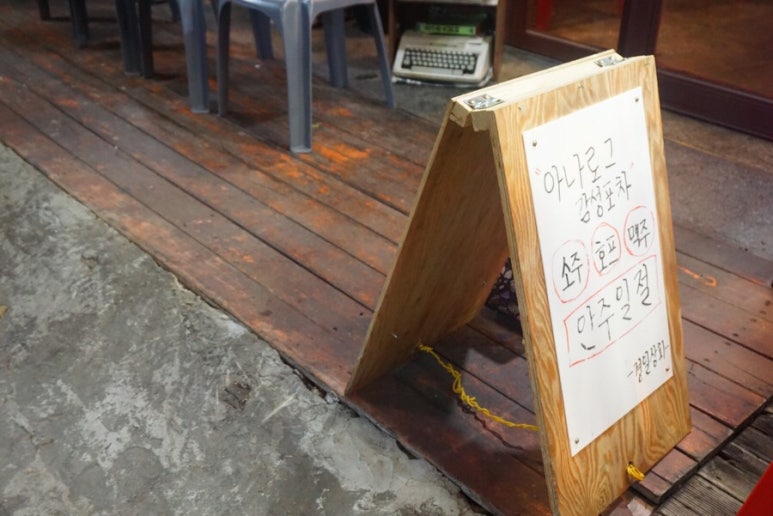 "아나로그"
감성포차
소주 호프 맥주
안주일절
-경일상회